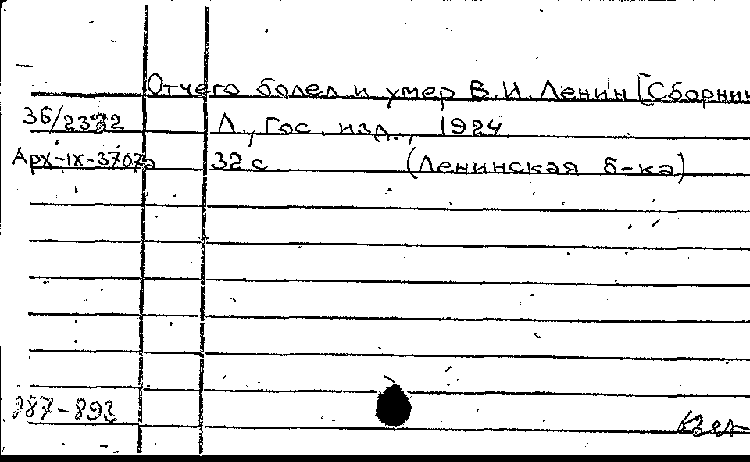 Отчего болел и умер В.И. Ленин [Сборник
36/2372 Л., Гос. изд., 1924.
Арх-IX-3707а 32 с. (Ленинская б-ка)
887-892